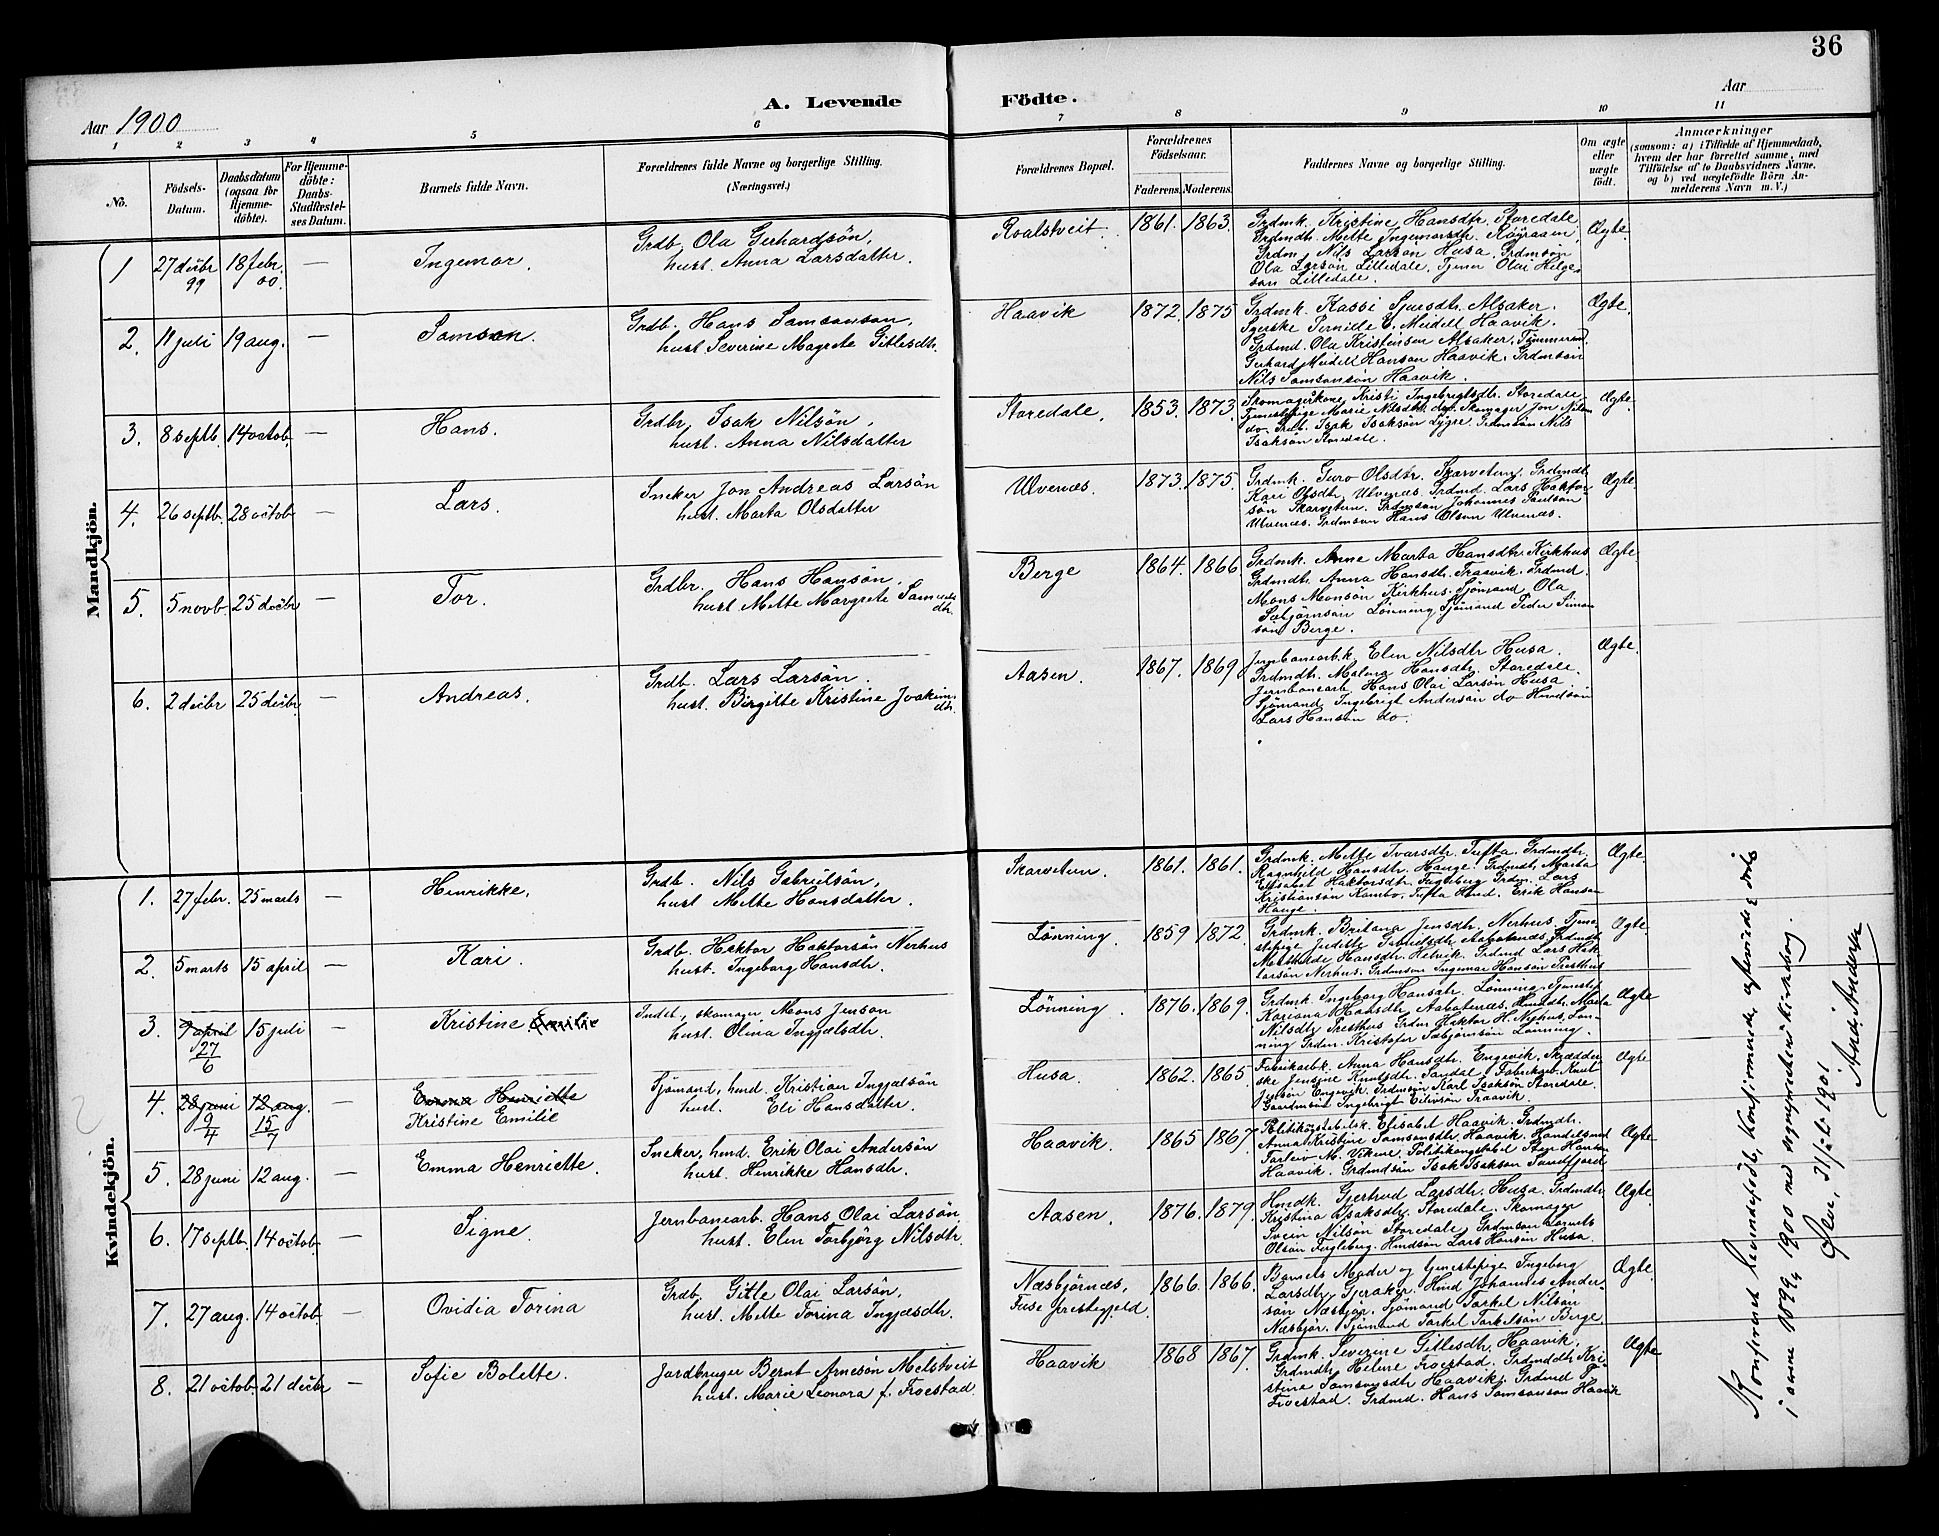 36
A. Levende Födte.
Aar 1900
Aar
1 2 3 4 5 6 7 8 9 10 11
No.
Födsels-
Datum.
Daabsdatum
(ogsaa for
Hjemme-
döbte).
For Hjemme-
döbte:
Daabs-
Stadfæstel-
ses Datum.
Barnets fulde Navn.
Forældrenes fulde Navne og borgerlige Stilling.
(Næringsvei.)
Forældrenes Bopæl.
Forældrenes
Födselsaar.
Faderens. Moderens.
Faddernes Navne og borgerlige Stilling.
Om ægte
eller
uægte
födt.
Anmærkninger
(saasom: a) i Tilfælde af Hjemmedaab,
hvem der har forrettet samme, med
Tilföielse af to Daabsvidners Navne.
og b) ved uægtefödte Börn An-
melderens Navn m. V.)
Mandkjön.
1 27 decbr 99 18 febr. 00. — Ingemar.
Grdb. Ola Gerhardsön,
hust. Anna Larsdatter.
Roalstveit. 1861. 1863.
Grdmk. Kristine Hansdtr. Storedale
Grdmdtr. Mette Ingemarsdtr. Röyraasen,
Grdm. Nils Larsön Husa. Grdmsön
Ola Larsön Lilledale. Tjener Olai Helge-
sön Lilledale.
Ægte.
2. 11 juli 19 aug. — Samson.
Grdb. Hans Samsonsön,
hust Severine Magrete Gitlesdtr.
Haavik 1872. 1875
Grdmk. Kassi Sjursdtr. Alsaker.
Pernille E. Meidell Haavik.
Grdmd. Ola Kristensen Alsaker. Tömmermd
Gerhard Meidell Hansön Haavik. Grdmsön
Nils Samsonsön Haavik.
Ægte.
3. 8 septb. 14 octob. — Hans.
Grdbr. Isak Nilsön,
hust. Anna Nilsdatter
Storedale. 1853. 1873.
Skomagerkone Kristi Ingebrigtsdtr. Storedale,
Tjenestepige Marie Nilsdtr. do. Skomager Jon Nilsen
do. Grdb. Isak Isaksön Lygre. Grdmsön Nils
Isaksön Storedale.
Ægte.
4. 26 septb. 28 octob — Lars.
Sneker Jon Andreas Larsön
hust. Marta Olsdatter
Ulvenæs. 1873. 1875.
Grdmk. Guro Olsdtr. Skarvetun, Grdmdtr.
Kari Olsdtr. Ulvenæs. Grdmd. Lars Haktor-
sön Skarvetun. Grdmsön Johannes Paulsön
Ulvenæs. Grdmsön Hans Olsen Ulvenæs.
Ægte
5. 5 novb. 25 decbr — Tor.
Grdbr. Hans Hansön,
hust Mette Margrete Samuels
dtr.
Berge 1864. 1866.
Grdmk. Anne Marta Hansdtr. Kirkhus
Grdmdtr. Anna Hansdtr. Traavik. Grdmd.
Mons Monsön Kirkhus. Sjömand Ola
Sæbjörnsön Lönning Sjömand Peder Simon
sön Berge.
Ægte
6. 2 decbr 25 decbr — Andreas.
Grdb. Lars Larsön.
hust. Birgitte Kristine Joakim-
dtr.
Aasen. 1867. 1869
Jernbanearb.k. Elen Nilsdtr Husa.
Grdmdtr. Malena Hansdtr. Storedale.
Jernbanearb Hans Olai Larsön Husa
Sjömand Ingebrigt Andersön do Hmdsön
Lars Hansön do.
Ægte.
Kvindekjön.
1. 27 febr. 25 marts — Henrikke.
Grdb. Nils Gabrielsön,
hust Mette Hansdatter.
Skarvetun. 1861. 1861.
Grdmk. Mette Ivarsdtr. Tufta. Grdmdtr.
Ragnhild Hansdtr. Hauge. Grdmdtr. Marta
Elisabet Haktorsdtr. Fugleberg Grdm. Lars
Kristiansön Kambo, Tufta Hmd. Erik Hansön
Hauge.
Ægte
2. 5 marts 15 april — Kari.
Grdb. Haktor Haktorsön Nerhus
hust. Ingeborg Hansdtr.
Lönning. 1859 1872.
Grdmk. Britana Jensdtr. Nerhus, Tjene
stepige Juditte Gabrielsdtr. Aabotsnæs, Grdmdtr.
Matthilde Hansdtr. Helvik. Grdmd Lars Hak-
torsön Nerhus. Grdmsön Ingemar Hansön Presthus
Ægte.
3. 9 april 27/6 15 juli — Kristine Emilie
Indst, skomager Mons Jenson
hust. Olina Ingjælsdtr.
Lönning. 1876. 1869.
Grdmk. Ingeborg Hansdtr. Lönning. Tjenestep
Kariana Hansdtr. Aabotsnæs, Hmdtr. Marta
Nilsdtr. Presthus Grdm. Haktor H. Nerhus, Lön-
ning Grdm. Kristofer Sæbjörnsön Lönning.
Ægte
4. 28 juni 9/4 12 aug. 15/7 — Emma Henriette
Kristine Emilie
Sjömand, hmd. Kristian Ingjælsön
hust. Eli Hansdatter.
Husa. 1862. 1865
Fabrikarbk. Anna Hansdtr. Engevik. Skrædder-
ske Jensine Knutsdtr. Sandal. Fabrikarb. Knut
Jensön Engevik. Grdmsön Karl Isaksön Storedale.
Gaardmsön Ingebrigt Eilivsön Traavik.
Ægte
5. 28 juni 12 aug. — Emma Henriette.
Sneker, hmd. Erik Olai Andersön
hust. Henrikke Hansdtr.
Haavik. 1865 1867.
Politikonstabelsk. Elisabet Haavik. Grdmdtr.
Anna Kristine Samsonsdtr. Haavik. Handelsmd
Torleiv M. Vikene. Politikonstabel Sten Hansön
Haavik. Grdmdsön Isak Isaksön Sandfjord
Ægte
6. 17 septb. 14 octob — Signe.
Jernbanearb. Hans Olai Larsön
hust. Elen Torbjörg Nilsdtr.
Aasen. 1876. 1879.
Hmdk. Gjertrud Larsdtr. Husa. Grdmdtr.
Kristina Isaksdtr. Storedale. Skomager
Svein Nilsön Storedale. Grdmsön Kornels
Olsön Fugleberg. Hmdsön Lars Hansön Husa.
Ægte.
7. 27 aug. 14 octob. — Ovidia Torina
Grdb. Gitle Olai Larsön,
hust. Mette Torina Ingjælsdtr.
Næsbjörnæs, 1866. 1866.
Fuse prestegjeld.
Barnets Moder og tjenestepige Ingeborg
Larsdtr. Gjeraker. Hmd Johannes Ander-
sön Næsbjör. Sjömand Torkel Nilsön
Næsbjör. Sjömand Torkel Torkelsön Berge
Ægte.
8. 21 octob. 21 decbr — Sofie Bolette.
Jordbruger Bernt Arnesön Melstveit
hust. Marie Leonora f. Froestad.
Haavik 1868 1867.
Grdmk. Severine Gitlesdtr. Haavik.
Grdmdtr. Helene Froestad. Grdmdtr Kri-
stine Samsonsdtr Haavik. Grdmd
Froestad. Grdmd. Hans Samsonson Haavik
Ægte
Konfereret levendefödt, konfirmerede, ægteviede & döde
i aarene 1899 & 1900 med sognepræstens kirkebog.
31/ 1901
And. Andersen